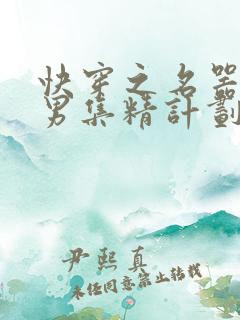 快穿之名器
男集精計劃
尹熙真
未经同意禁止转载